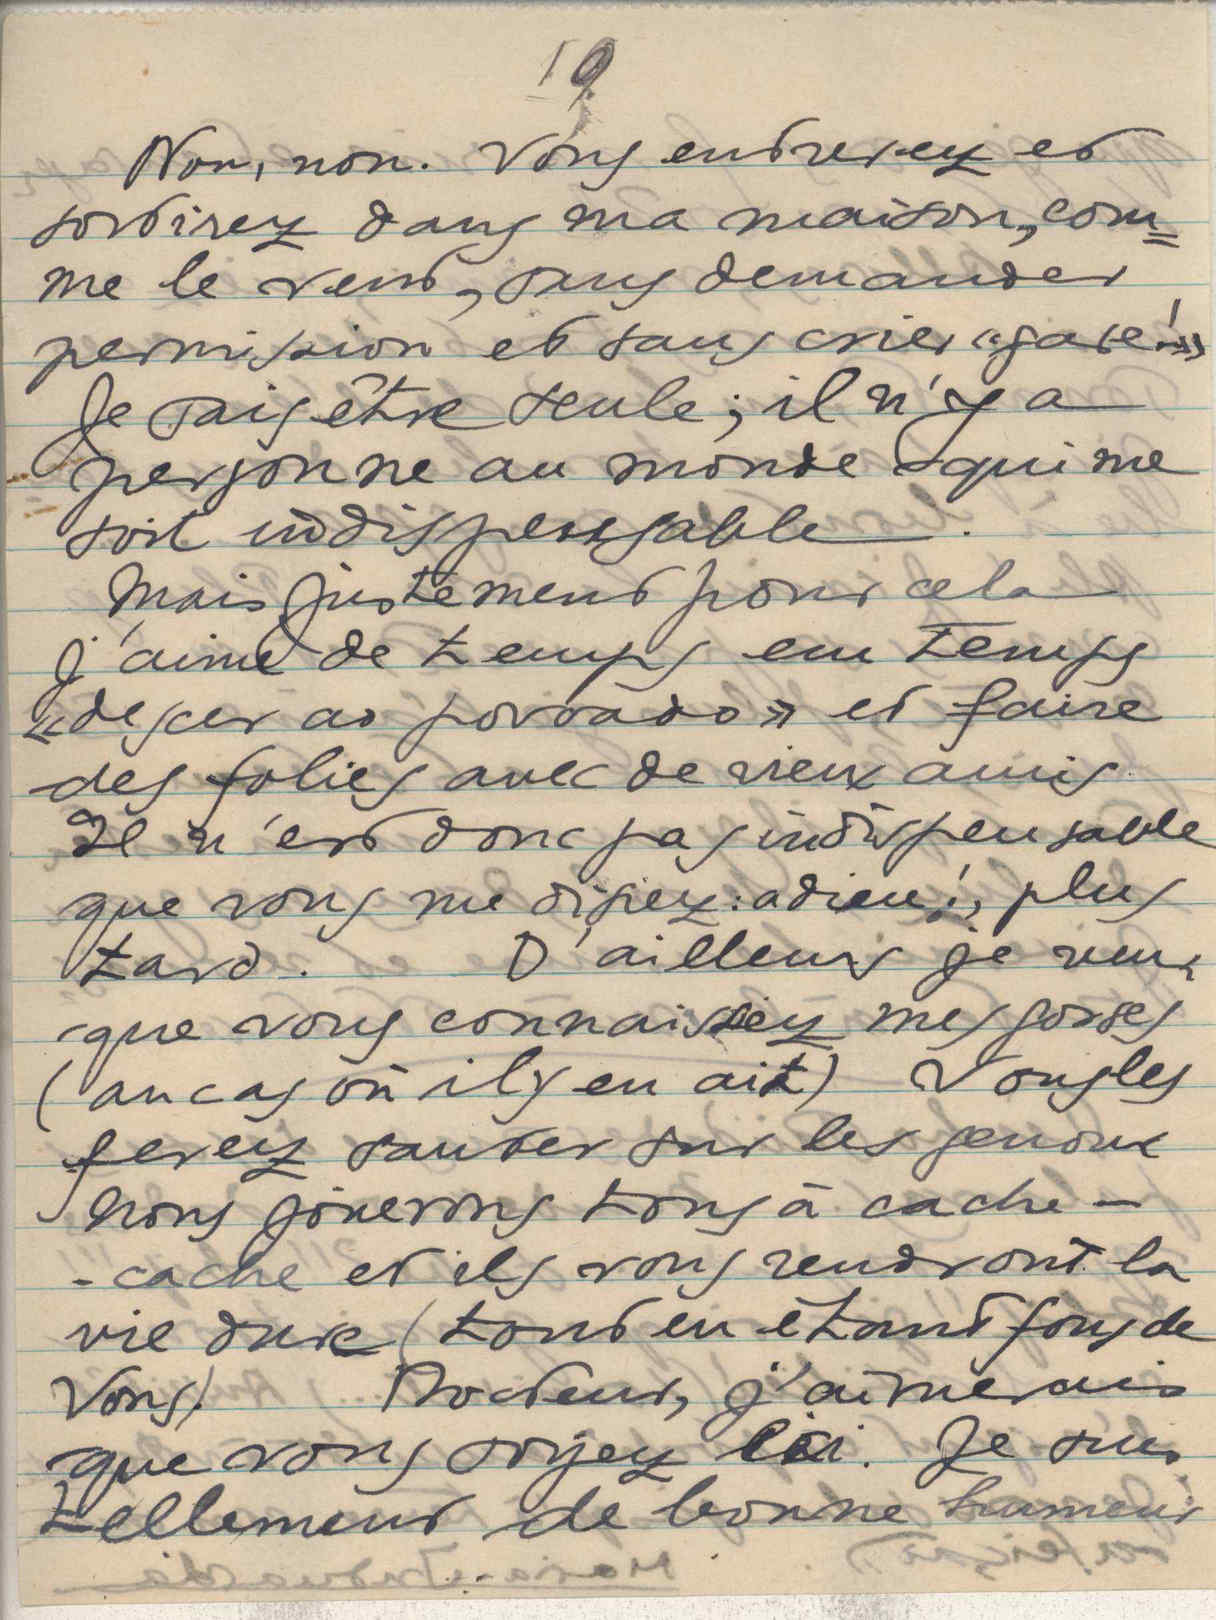 19
Non, non. Vous entrerez et
sortirez dans ma maison, com=
me le vent, sans demander
permission et sans crier «gare!»
Je sais être seule; il n'y a
personne au monde qui me
soit indispensable.
Mais justement pour cela
j'aime de temps en temps
«descer ao povoado» et faire
des folies avec de vieux amis.
Il n'est donc pas indispensable
que vous me disiez: adieu!, plus
tard. D'ailleurs je veux
que vous connaissiez mes gosses
(au cas où il y en ait) Vous les
ferez sauter sur les genoux
nous jouerons tous à cache-
-cache et ils vous rendront la
vie dure (tout en étant fous de
vous) Docteur, j'aimerais
que vous soyez ici. Je suis
tellement de bonne humeur